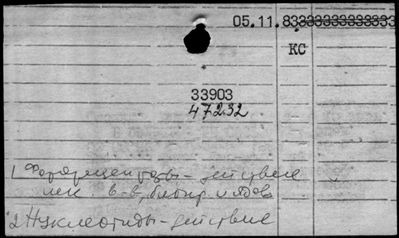 05.11.83333333333333
КС
33903
47232
1 Форменные - действие
лек в-в, биопр. и ядов
2 Нуклеотиды - действие